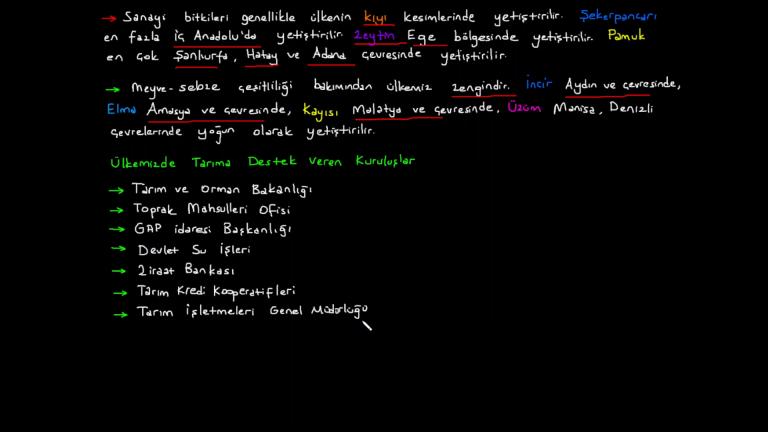 → Sanayi bitkileri genellikle ülkenin kıyı kesimlerinde yetiştirilir. Şekerpancarı
en fazla İç Anadolu'da yetiştirilir Zeytin Ege bölgesinde yetiştirilir. Pamuk
en çok Şanlıurfa, Hatay ve Adana çevresinde yetiştirilir.
→ Meyve-sebze çeşitliliği bakımından ülkemiz zengindir. İncir Aydın ve çevresinde,
Elma Amasya ve çevresinde, Kayısı Malatya ve çevresinde, Üzüm Manisa, Denizli
çevrelerinde yoğun olarak yetiştirilir.
Ülkemizde Tarıma Destek Veren Kuruluşlar
→ Tarım ve Orman Bakanlığı
→ Toprak Mahsulleri Ofisi
→ GAP idaresi Başkanlığı
→ Devlet Su İşleri
→ Ziraat Bankası
→ Tarım Kredi Kooperatifleri
→ Tarım İşletmeleri Genel Müdürlüğü